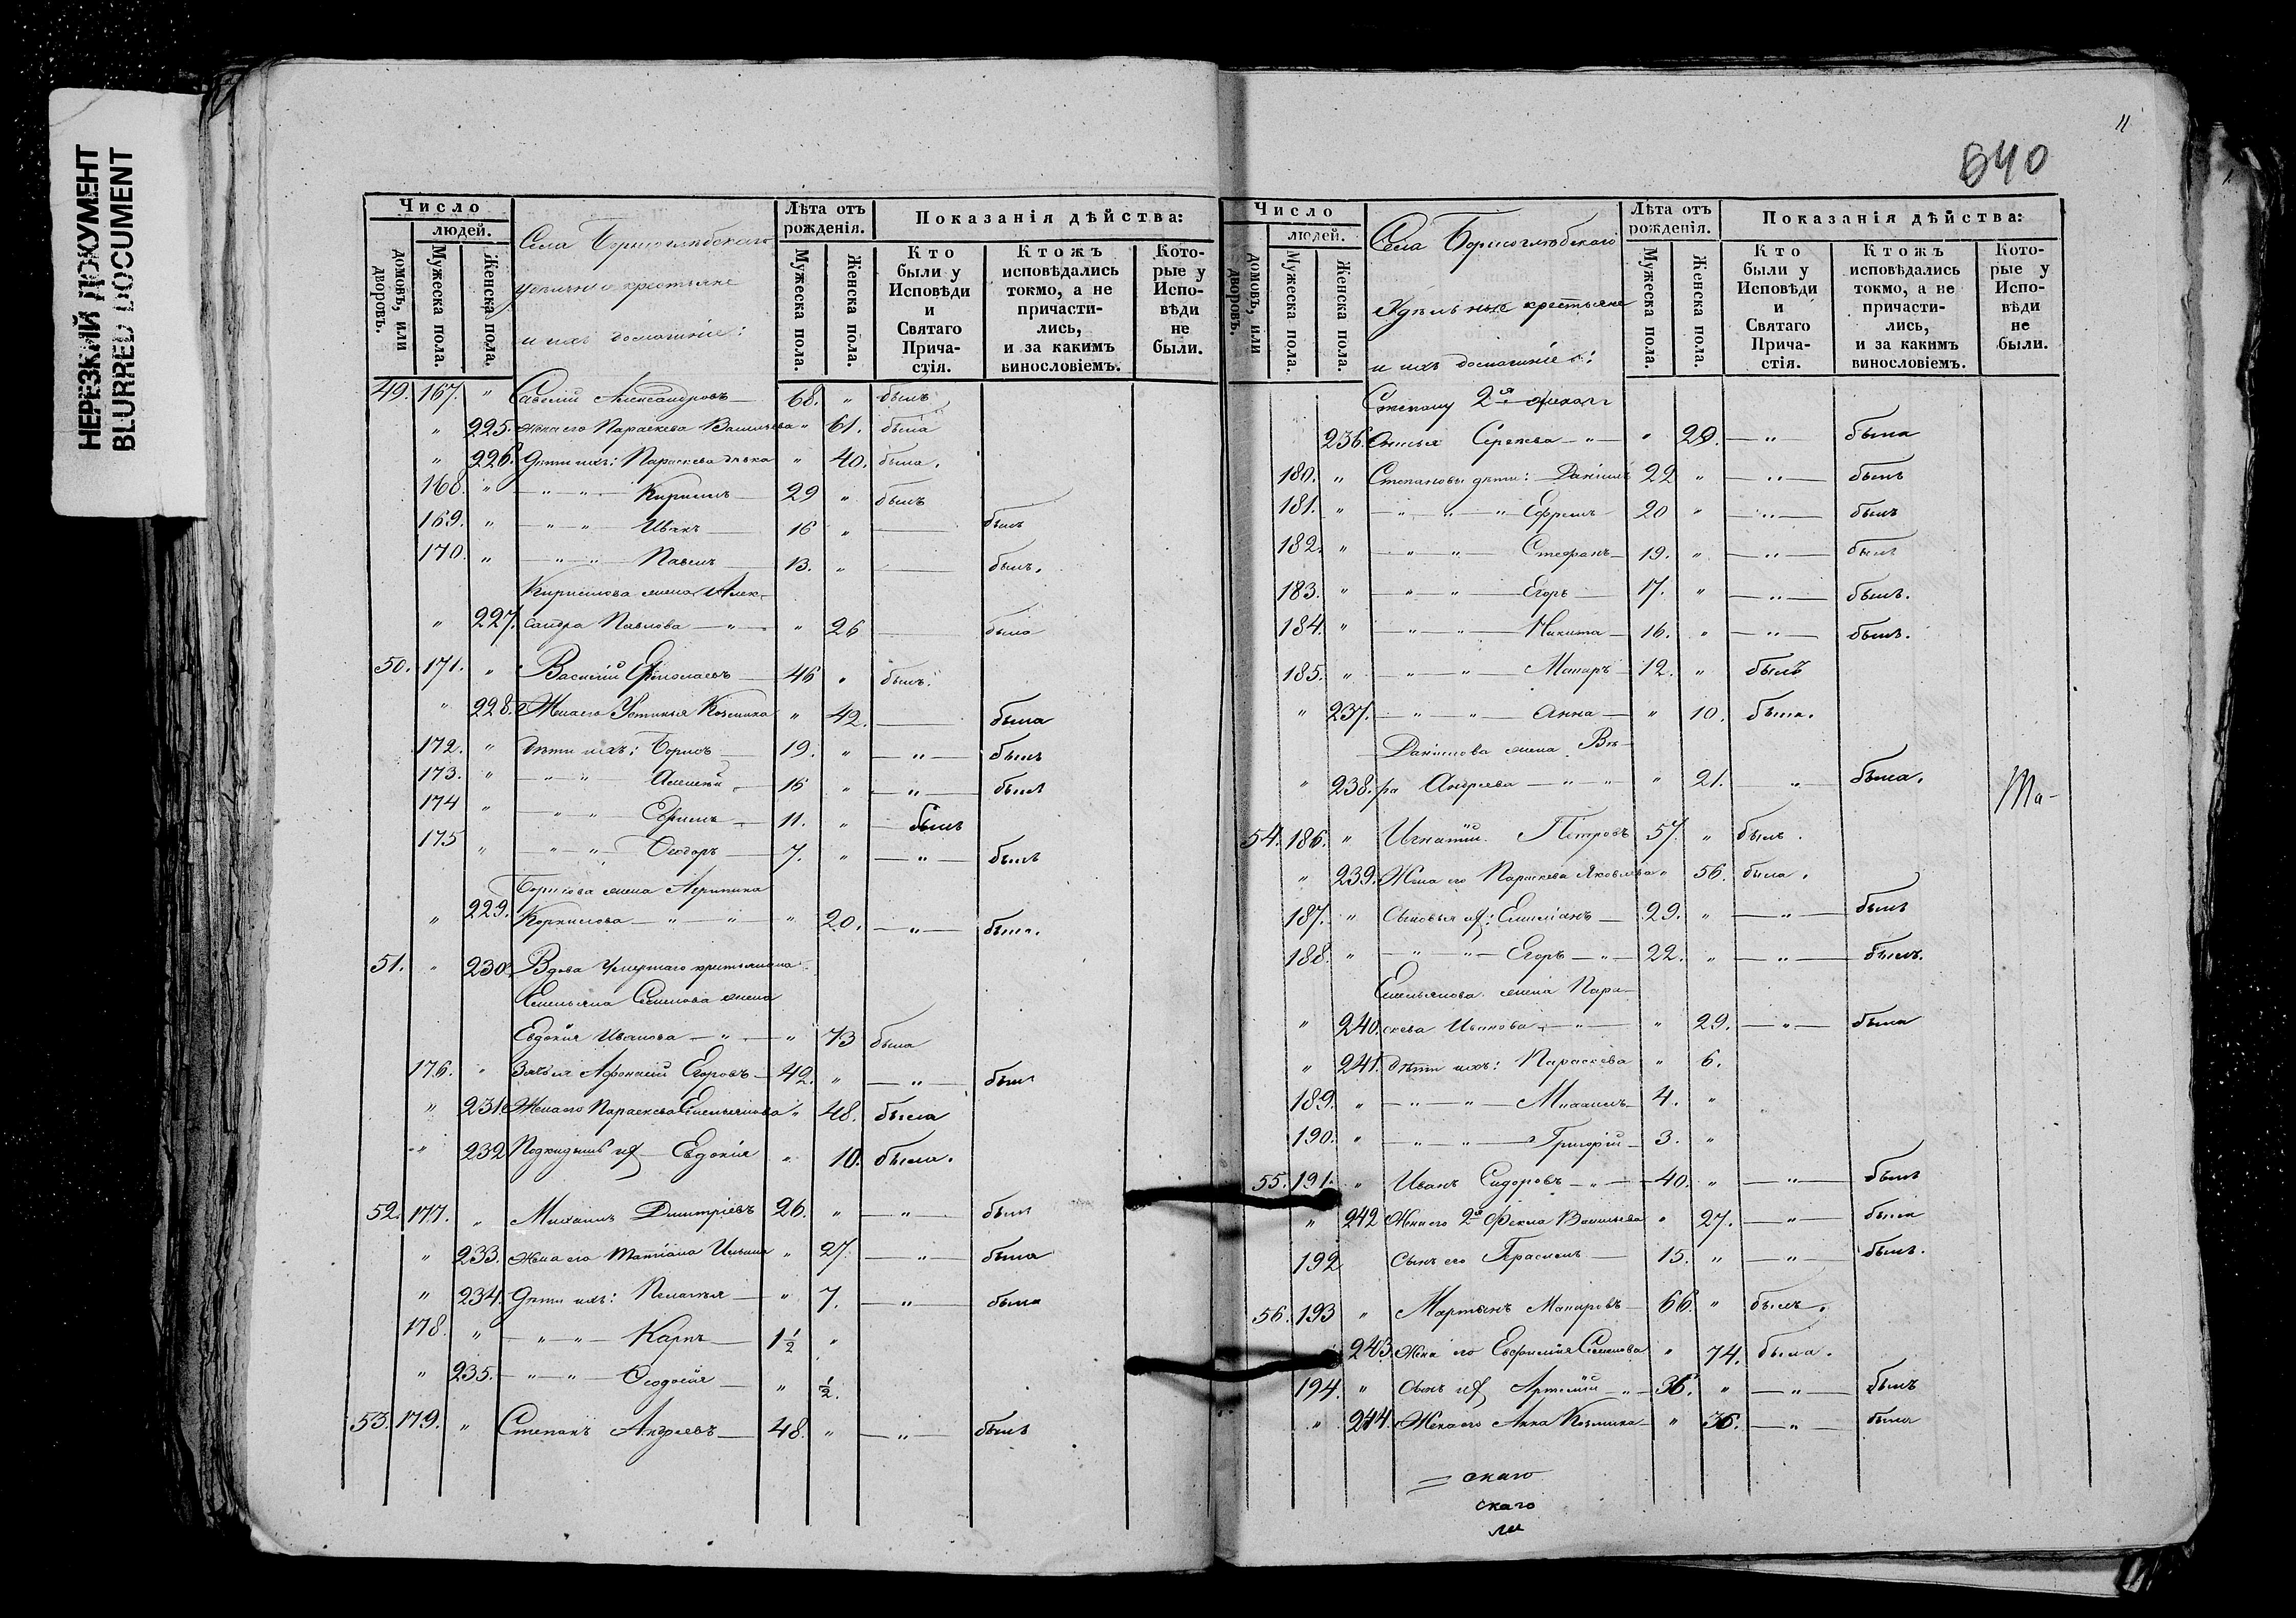 НЕРЕЗКИЙ ДОКУМЕНТ
BLURRED DOCUMENT
Число
людей.
домовъ, или дворовъ.
Мужеска пола.
Женска пола.
Села Борисоглѣбскаго
крестьяне
и ихъ домашніе:
Лѣта отъ рожденія.
Мужеска пола.
Женска пола.
Показанія дѣйства:
Кто были у Исповѣди и Святаго Прича-стія.
Ктожъ исповѣдались токмо, а не причасти-лись, и за какимъ винословіемъ.
Кото-рые у Испо-вѣди не были.
49. 167. " Савелій Александровъ — 68. " былъ
" 225. жена его Параскева Васильева " 61. была
" 226. Дѣти ихъ: Параскева дѣвка " 40. была.
168. " — " — " — Кирилъ — 29 " былъ
169. " — " — " Иванъ — 16 " — былъ
170. " — " — " — Павелъ — 13. " — былъ.
Кирилова жена Алек-
" 227. сандра Павлова — " — " 26 — была
50. 171. " Василій Ермолаевъ — 46 " былъ.
" 228. Жена его Устинья Козмина " 42. — была
172. " Дѣти ихъ: Борисъ — 19. " — " — былъ
173. " — " — " Алексѣй — 16 " — " — былъ
174 " — " — " Ефимъ — 11. " былъ
175 " — " — " — Ѳеодоръ — 7. " — " — былъ
Борисова жена Агрипина
" 229. Корнилова — " — " — " 20. — " — была.
51. " 230. Вдова умершаго крестьянина
Емельяна Семенова жена
Евдокия Иванова — " — " 73 была
176. " Зять ея Афонасій Егоровъ — 42. " — " — былъ
" 231. Жена его Параскева Емельянова " 48. была
" 232 Подкидышъ их Евдокія " 10. была.
52. 177. " Михаилъ Димитріевъ 26. " — " — былъ
" 233. Жена его Татіана Ильина " 27. — " — была
" 234. Дѣти ихъ: Пелагея — " 7. — " — была
178. " — " — " — Карпъ — 1½ "
" 235. — " — " — Ѳеодосія — " ½.
53. 179. " Степанъ Андреевъ — 48. " — " — былъ
11
640
Число
людей.
домовъ, или дворовъ.
Мужеска пола.
Женска пола.
Села Борисоглѣбскаго
Удѣльные крестьяне
и ихъ домашніе:
Лѣта отъ рожденія.
Мужеска пола.
Женска пола.
Показанія дѣйства:
Кто были у Исповѣди и Святаго Прича-стія.
Ктожъ исповѣдались токмо, а не причасти-лись, и за какимъ винословіемъ.
Кото-рые у Испо-вѣди не были.
2я жена
236. Сергеева — " — " 29. — " — была
180. " Степановы дѣти: Даніилъ 22 " — " — былъ
181. " — " — " — " Ефремъ 20 " — " — былъ
182. " — " — " — Стефанъ — 19. " — " — былъ
183. " — " — " — Егоръ — 17. " — " — былъ.
184. " — " — " — Никита — 16. " — " — былъ.
185. " — " — " — Макаръ — 12. " былъ
" 237. — " — " — Анна — " 10. была.
Данилова жена Вѣ-
" 238. ра Андреева — " — " " 21. — " была.
Ма-
54. 186. " Игнатій Петровъ 57. " былъ.
" 239. Жена его Параскева Яковлева " 56. была.
187. " Сыновья их: Емиліанъ — 29. " — " — былъ
188. " — " — " — Егоръ — " — 22. " — " — былъ.
Емельянова жена Пара-
" 240. скева Иванова — " — " 29. — " — была
" 241. Дѣти ихъ: Параскева " 6.
189. " — " — " — Михаилъ — 4. "
190. " — " — " — Григорій — 3. "
55. 191. " Иванъ Сидоровъ — " — 40. " — " — былъ
" 242 Жена его 2я Ѳекла Васильева " 27. — " — была
192 Сынъ его Герасимъ — 15. " — " — былъ.
56. 193 " Мартынъ Макаровъ — 66. " былъ.
243. Жена его Евфимія Семенова " 74. была.
194. " Сынъ их Артемій — " — 36. " — " — былъ
" 244. Жена его Анна Козмина — " 36. — " — была
= скаго
скаго
ли